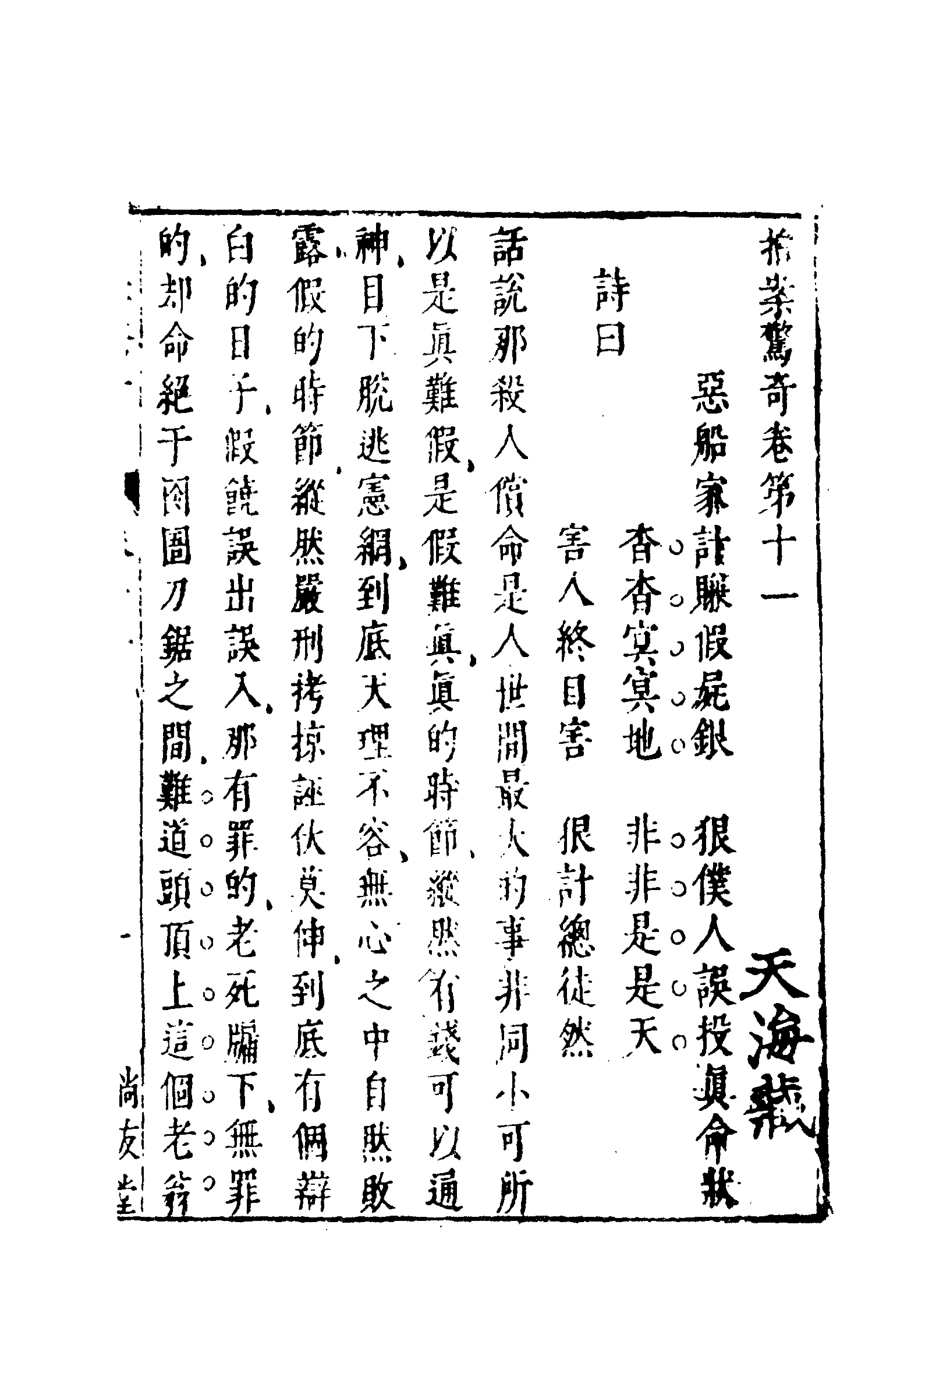 拍案驚奇卷第十一
天海藏
惡船家計賺假屍銀　狠僕人誤投眞命狀
詩曰
杳杳冥冥地　非非是是天
害人終自害　狠計總徒然
話說那殺人償命是人世間最大的事非同小可所
以是眞難假是假難眞眞的時節縱然有錢可以通
神目下脫逃憲網到底天理不容無心之中自然敗
露假的時節縱然嚴刑拷掠誣伏莫伸到底有個辯
白的日子假饒誤出誤入那有罪的老死牖下無罪
的却命絕于囹圄刀鋸之間難道頭頂上這個老翁
尚友堂